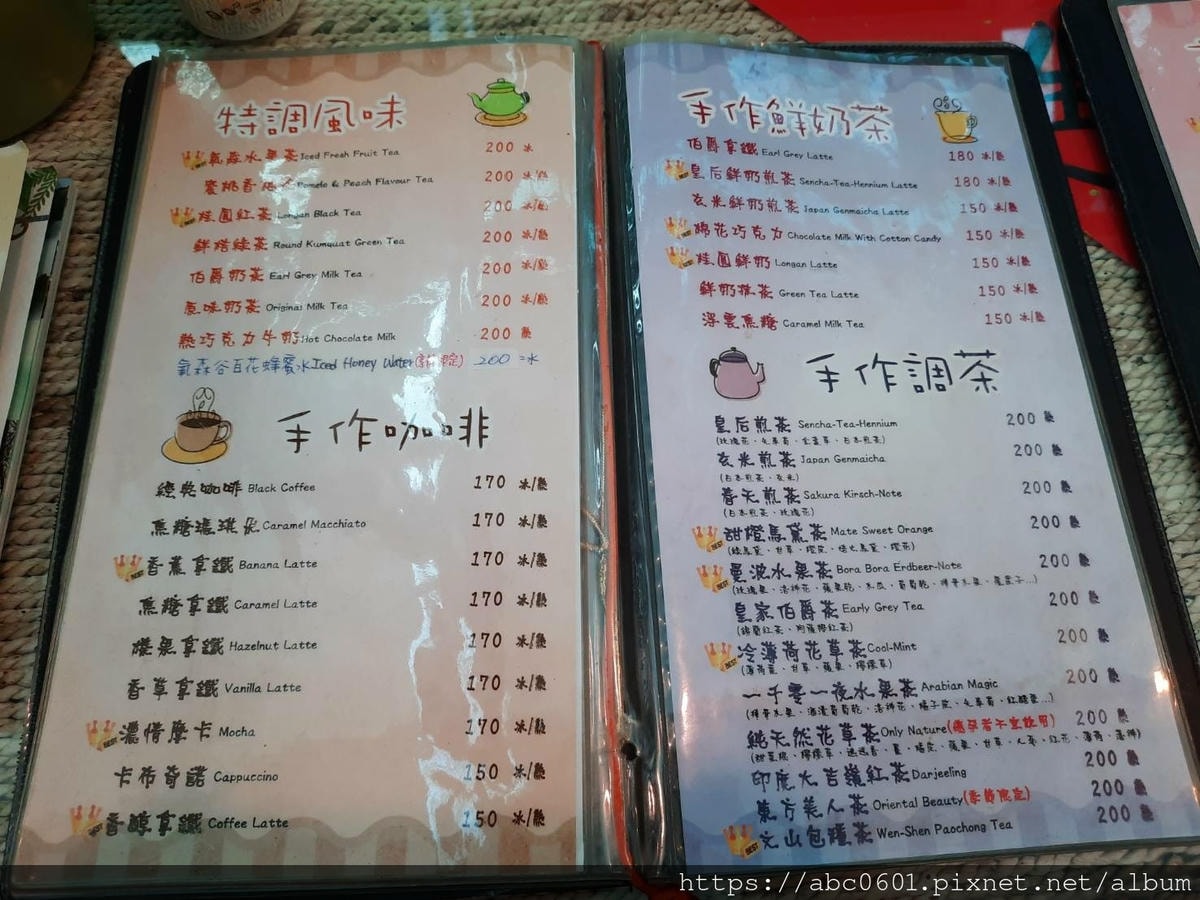 特調風味
BEST 氧森水果茶 Iced Fresh Fruit Tea 200 冰
蜜桃香 Pomelo & Peach Flavour Tea 200 冰
BEST 桂圓紅茶 Longan Black Tea 200 冰/熱
鮮桔綠茶 Round Kumquat Green Tea 200 冰/熱
伯爵奶茶 Earl Grey Milk Tea 200 冰/熱
原味奶茶 Original Milk Tea 200 冰/熱
熱巧克力牛奶 Hot Chocolate Milk 200 熱
氧森谷百花蜂蜜水 Iced Honey Water 200 冰
手作咖啡
經典咖啡 Black Coffee 170 冰/熱
焦糖瑪琪朵 Caramel Macchiato 170 冰/熱
BEST 香蕉拿鐵 Banana Latte 170 冰/熱
焦糖拿鐵 Caramel Latte 170 冰/熱
榛果拿鐵 Hazelnut Latte 170 冰/熱
香草拿鐵 Vanilla Latte 170 冰/熱
BEST 濃情摩卡 Mocha 170 冰/熱
卡布奇諾 Cappuccino 150 冰/熱
BEST 香醇拿鐵 Coffee Latte 150 冰/熱
手作鮮奶茶
伯爵拿鐵 Earl Grey Latte 180 冰/熱
BEST 皇后鮮奶煎茶 Sencha-Tea-Hennium Latte 180 冰/熱
玄米鮮奶煎茶 Japan Genmaicha Latte 150 冰/熱
BEST 棉花巧克力 Chocolate Milk With Cotton Candy 150 冰/熱
BEST 桂圓鮮奶 Longan Latte 150 冰/熱
鮮奶抹茶 Green Tea Latte 150 冰/熱
深雲焦糖 Caramel Milk Tea 150 冰/熱
手作調茶
皇后煎茶 Sencha-Tea-Hennium 200 熱
(玫瑰花、矢車菊、金盞草、日本煎茶)
玄米煎茶 Japan Genmaicha 200 熱
(日本煎茶、玄米)
春天煎茶 Sakura Kirsch-Note 200 熱
(日本煎茶、玫瑰花)
BEST 甜橙馬黛茶 Mate Sweet Orange 200 熱
(綠馬黛、甘草、橙皮、烘火馬黛、橙花)
BEST 曼波水果茶 Bora Bora Erdbeer-Note 200 熱
(玫瑰果、洛神花、蘋果乾、木瓜、葡萄乾、檸草木果、覆盆子...)
皇家伯爵茶 Early Grey Tea 200 熱
(錫蘭紅茶、阿薩姆紅茶)
BEST 冷薄荷花草茶 Cool-Mint 200 熱
(薄荷葉、甘草、蘋果、檸檬草)
一千零一夜水果茶 Arabian Magic 200 熱
純天然花草茶 Only Nature(懷孕者不宜飲用) 200 熱
印度大吉嶺紅茶 Darjeeling 200 熱
東方美人茶 Oriental Beauty(季節限定) 200 熱
BEST 文山包種茶 Wen-Shen Paochong Tea 200 熱
https://abc0601.pixnet.net/album